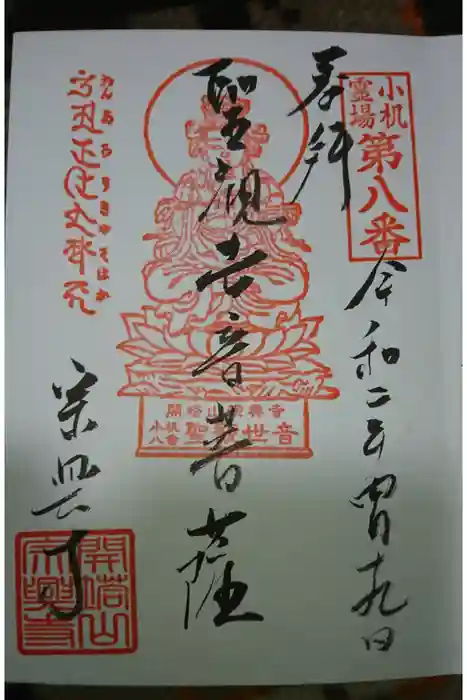 小机
霊場
第八番
令和二年四月
奉拝
聖観世音菩薩
開塔山宗興寺
小机
八番
聖観世音
おんあろりきゃそはか
宗興寺
開塔山
宗興寺